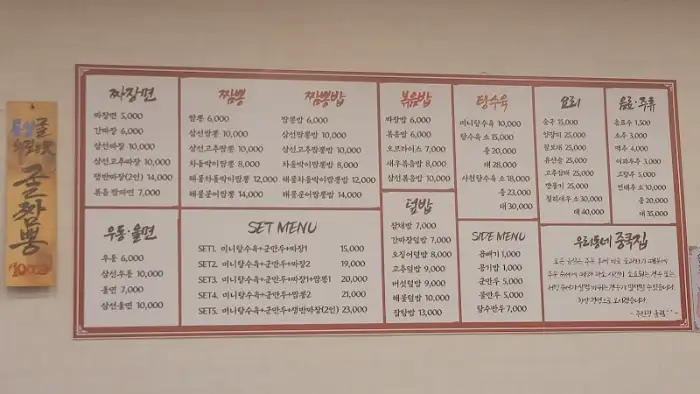 굴짬뽕
10000
짜장면
짜장면 5,000
간짜장 6,000
삼선짜장 10,000
삼선고추짜장 10,000
쟁반짜장(2인) 14,000
볶음짬짜면 7,000
우동·울면
우동 6,000
삼선우동 10,000
울면 7,000
삼선울면 10,000
짬뽕
짬뽕 6,000
삼선짬뽕 10,000
삼선고추짬뽕 10,000
차돌박이짬뽕 8,000
해물차돌박이짬뽕 12,000
해물문어짬뽕 14,000
짬뽕밥
짬뽕밥 6,000
삼선짬뽕밥 10,000
삼선고추짬뽕밥 10,000
차돌박이짬뽕밥 8,000
해물차돌박이짬뽕밥 12,000
해물문어짬뽕밥 14,000
SET MENU
SET1. 미니탕수육+군만두+짜장1 15,000
SET2. 미니탕수육+군만두+짜장2 19,000
SET3. 미니탕수육+군만두+짜장1+짬뽕1 20,000
SET4. 미니탕수육+군만두+짬뽕2 21,000
SET5. 미니탕수육+군만두+쟁반짜장(2인) 23,000
볶음밥
짜장밥 6,000
볶음밥 6,000
오므라이스 7,000
새우볶음밥 8,000
삼선볶음밥 10,000
덮밥
잡채밥 7,000
간짜장덮밥 7,000
오징어덮밥 8,000
고추덮밥 9,000
버섯덮밥 9,000
해물덮밥 10,000
잡탕밥 13,000
탕수육
미니탕수육 10,000
탕수육 소 15,000
중 20,000
대 28,000
사천탕수육 소 18,000
중 23,000
대 30,000
SIDE MENU
곱빼기 1,000
공기밥 1,000
군만두 5,000
물만두 5,000
탕수만두 7,000
요리
술국 15,000
양장피 25,000
팔보채 25,000
유산슬 25,000
고추잡채 25,000
깐풍기 25,000
칠리새우 소 30,000
대 40,000
음료·주류
음료수 1,500
소주 3,000
맥주 4,000
이과두주 3,000
고량주 5,000
연태주 소 10,000
중 20,000
대 35,000
우리동네 중국집